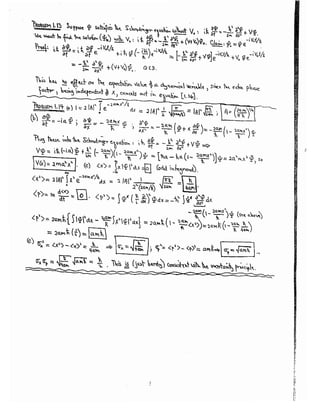 Problem 1.13 Suppose Ψ satisfies the Schrödinger equation without V₀: iħ ∂Ψ/∂t = -ħ²/2m ∂²Ψ/∂x² + VΨ.
We want to find the solution (Ψ₀) with V₀: iħ ∂Ψ₀/∂t = -ħ²/2m ∂²Ψ₀/∂x² + (V+V₀)Ψ₀. Claim: Ψ₀ = Ψ e^(-iV₀t/ħ)
Proof: iħ ∂Ψ₀/∂t = iħ ∂Ψ/∂t e^(-iV₀t/ħ) + iħ Ψ (-iV₀/ħ) e^(-iV₀t/ħ) = [-ħ²/2m ∂²Ψ/∂x² + VΨ] e^(-iV₀t/ħ) + V₀ Ψ e^(-iV₀t/ħ)
= -ħ²/2m ∂²Ψ₀/∂x² + (V+V₀)Ψ₀. QED.
This has no effect on the expectation value of a dynamical variable, since the extra phase
factor, being independent of x, cancels out in equation
Problem 1.14 (a) 1 = 2|A|² ∫₀^∞ e^(-2amx²/ħ) dx = 2|A|² ½ √(π/(2am/ħ)) = |A|² √(πħ/2am); A = (2am/πħ)^(1/4)
(b) ∂Ψ/∂t = -iaΨ; ∂Ψ/∂x = -2amx/ħ Ψ; ∂²Ψ/∂x² = -2am/ħ (Ψ + x ∂Ψ/∂x) = -2am/ħ (1 - 2amx²/ħ) Ψ
Plug these into the Schrödinger equation: iħ ∂Ψ/∂t = -ħ²/2m ∂²Ψ/∂x² + VΨ ⇒
VΨ = iħ(-ia)Ψ + ħ²/2m (-2am/ħ)(1 - 2amx²/ħ)Ψ = [ħa - ħa(1 - 2amx²/ħ)]Ψ = 2a²mx²Ψ, so
V(x) = 2ma²x². (c) <x> = ∫x|Ψ|²dx = 0 (odd integrand).
<x²> = 2|A|² ∫₀^∞ x² e^(-2amx²/ħ) dx = 2|A|² 1/(2²(2am/ħ)) √(πħ/2am) = ħ/4am
<p> = m d<x>/dt = 0. <p²> = ∫Ψ* (ħ/i ∂/∂x)² Ψ dx = -ħ² ∫Ψ* ∂²Ψ/∂x² dx
= -ħ² ∫Ψ* [-2am/ħ (1 - 2amx²/ħ)Ψ] dx (see above)
<p²> = 2amħ {∫|Ψ|²dx - 2am/ħ ∫x²|Ψ|²dx} = 2amħ (1 - 2am/ħ <x²>) = 2amħ (1 - 2am/ħ ħ/4am)
= 2amħ (½) = amħ
(d) σₓ² = <x²> - <x>² = ħ/4am ⇒ σₓ = √(ħ/4am); σₚ² = <p²> - <p>² = amħ ⇒ σₚ = √(amħ)
σₓσₚ = √(ħ/4am) √(amħ) = ħ/2. This is (just barely) consistent with the uncertainty principle.